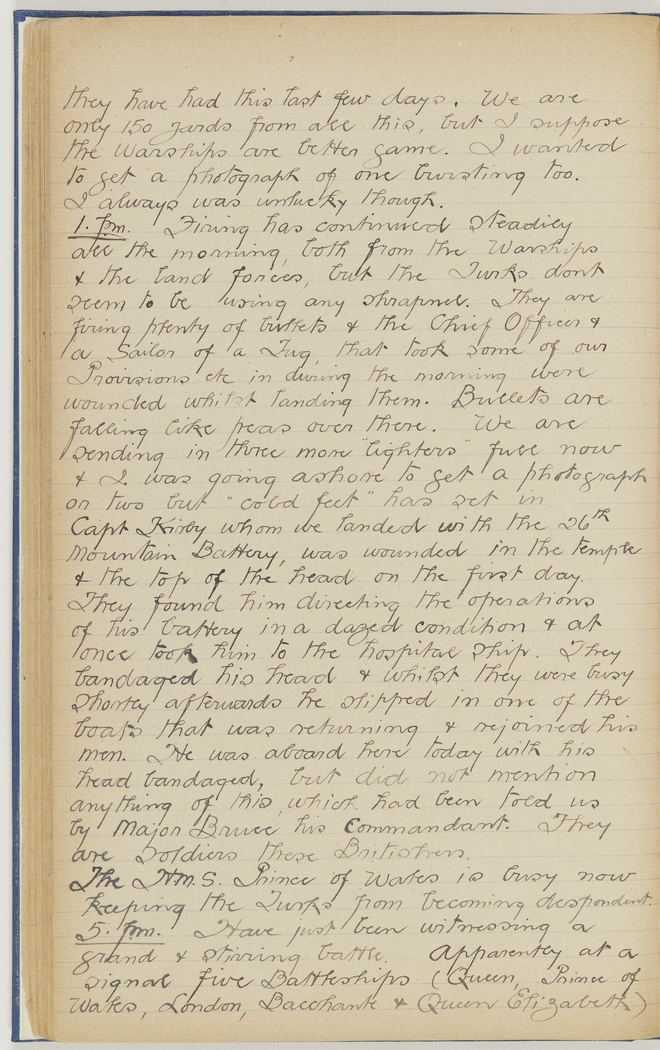 they have had this last few days. We are
only 150 yards from all this, but I suppose
the Warships are better game. I wanted
to get a photograph of one bursting too.
I always was unlucky though.
1. pm. Firing has continued steadily
all the morning, both from the Warships
& the land forces, but the Turks dont
seem to be using any shrapnel. They are
firing plenty of bullets & the Chief Officer &
a Sailor of a Tug, that took some of our
Provisions etc in during the morning were
wounded whilst landing them. Bullets are
falling like peas over there. We are
sending in three more "lighters" full now
& I was going ashore to get a photograph
or two but "cold feet" has set in
Capt Kirby whom we landed with the 26th
Mountain Battery, was wounded in the temple
& the top of the head on the first day.
They found him directing the operations
of his battery in a dazed condition & at
once took him to the hospital ship. They
bandaged his head & whilst they were busy
shortly afterwards he slipped in one of the
boats that was returning & rejoined his
men. He was aboard here today with his
head bandaged, but did not mention
anything of this, which had been told us
by Major Bruce his Commandant. They
are soldiers these Britishers.
The H.M.S. Prince of Wales is busy now
keeping the Turks from becoming despondent.
5. pm. Have just been witnessing a
grand & stirring battle. Apparently at a
signal five Battleships (Queen, Prince of
Wales, London, Bacchante & Queen Elizabeth)